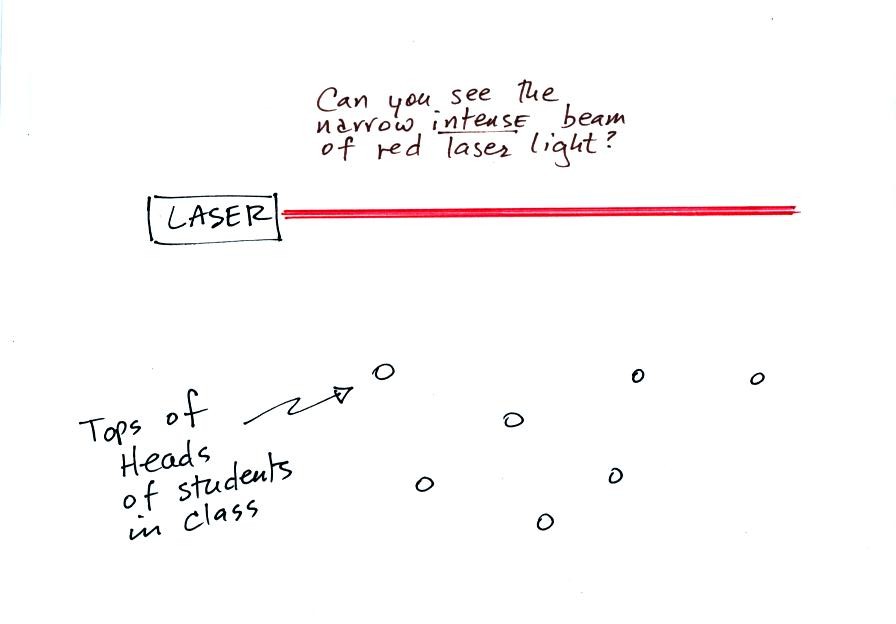 Can you see the
narrow intense beam
of red laser light?
LASER
Tops of
Heads
of students
in class